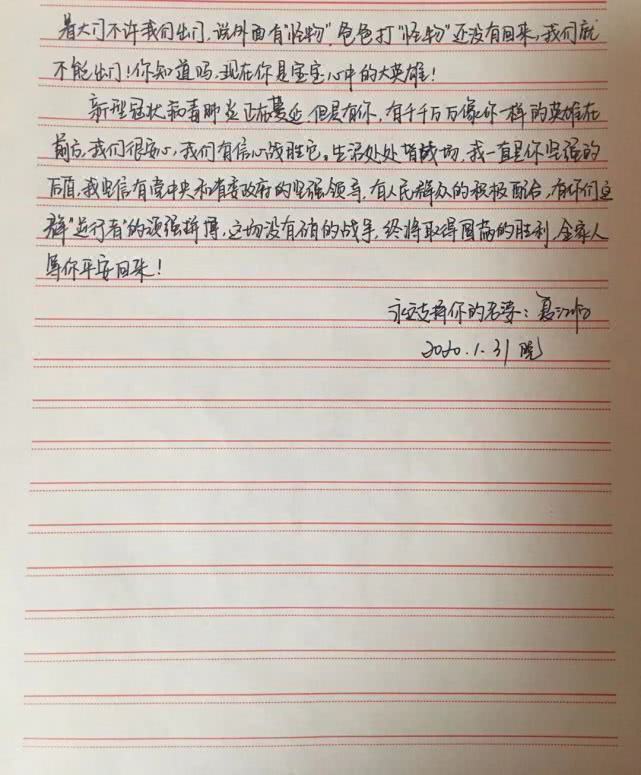 着大门不许我们出门,说外面有"怪物",爸爸打"怪物"还没有回来,我们就
不能出门!你知道吗,现在你是宝宝心中的大英雄!
新型冠状病毒肺炎正在蔓延,但是有你,有千千万万像你一样的英雄在
前方,我们很安心,我们有信心战胜它。生活处处皆战场,我一直是你坚强的
后盾,我坚信有党中央和省委政府的坚强领导,有人民群众的积极配合,有你们这
群"逆行者"的顽强拼搏,这场没有硝的战争,终将取得圆满的胜利,全家人
等你平安回来!
永远支持你的老婆:夏
2020.1.31晚